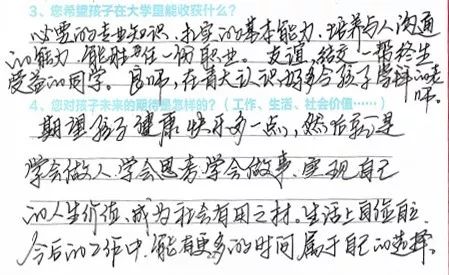 3、您希望孩子在大学里能收获什么?
必要的专业知识,扎实的基本能力,培养与人沟通
的能力,能胜任一個职业。友谊,结交一帮终生
受益的同学。良师,在青大认识好多令孩子学习的老
师。
4、您对孩子未来的期待是怎样的?(工作、生活、社会价值……)
期望孩子健康快乐多一点,然后就是
学会做人.学会思考.学会做事.实现自己
的人生价值、成为社会有用之材。生活上自信自立.
今后的工作中.能有更多的时间属于自己的选择。